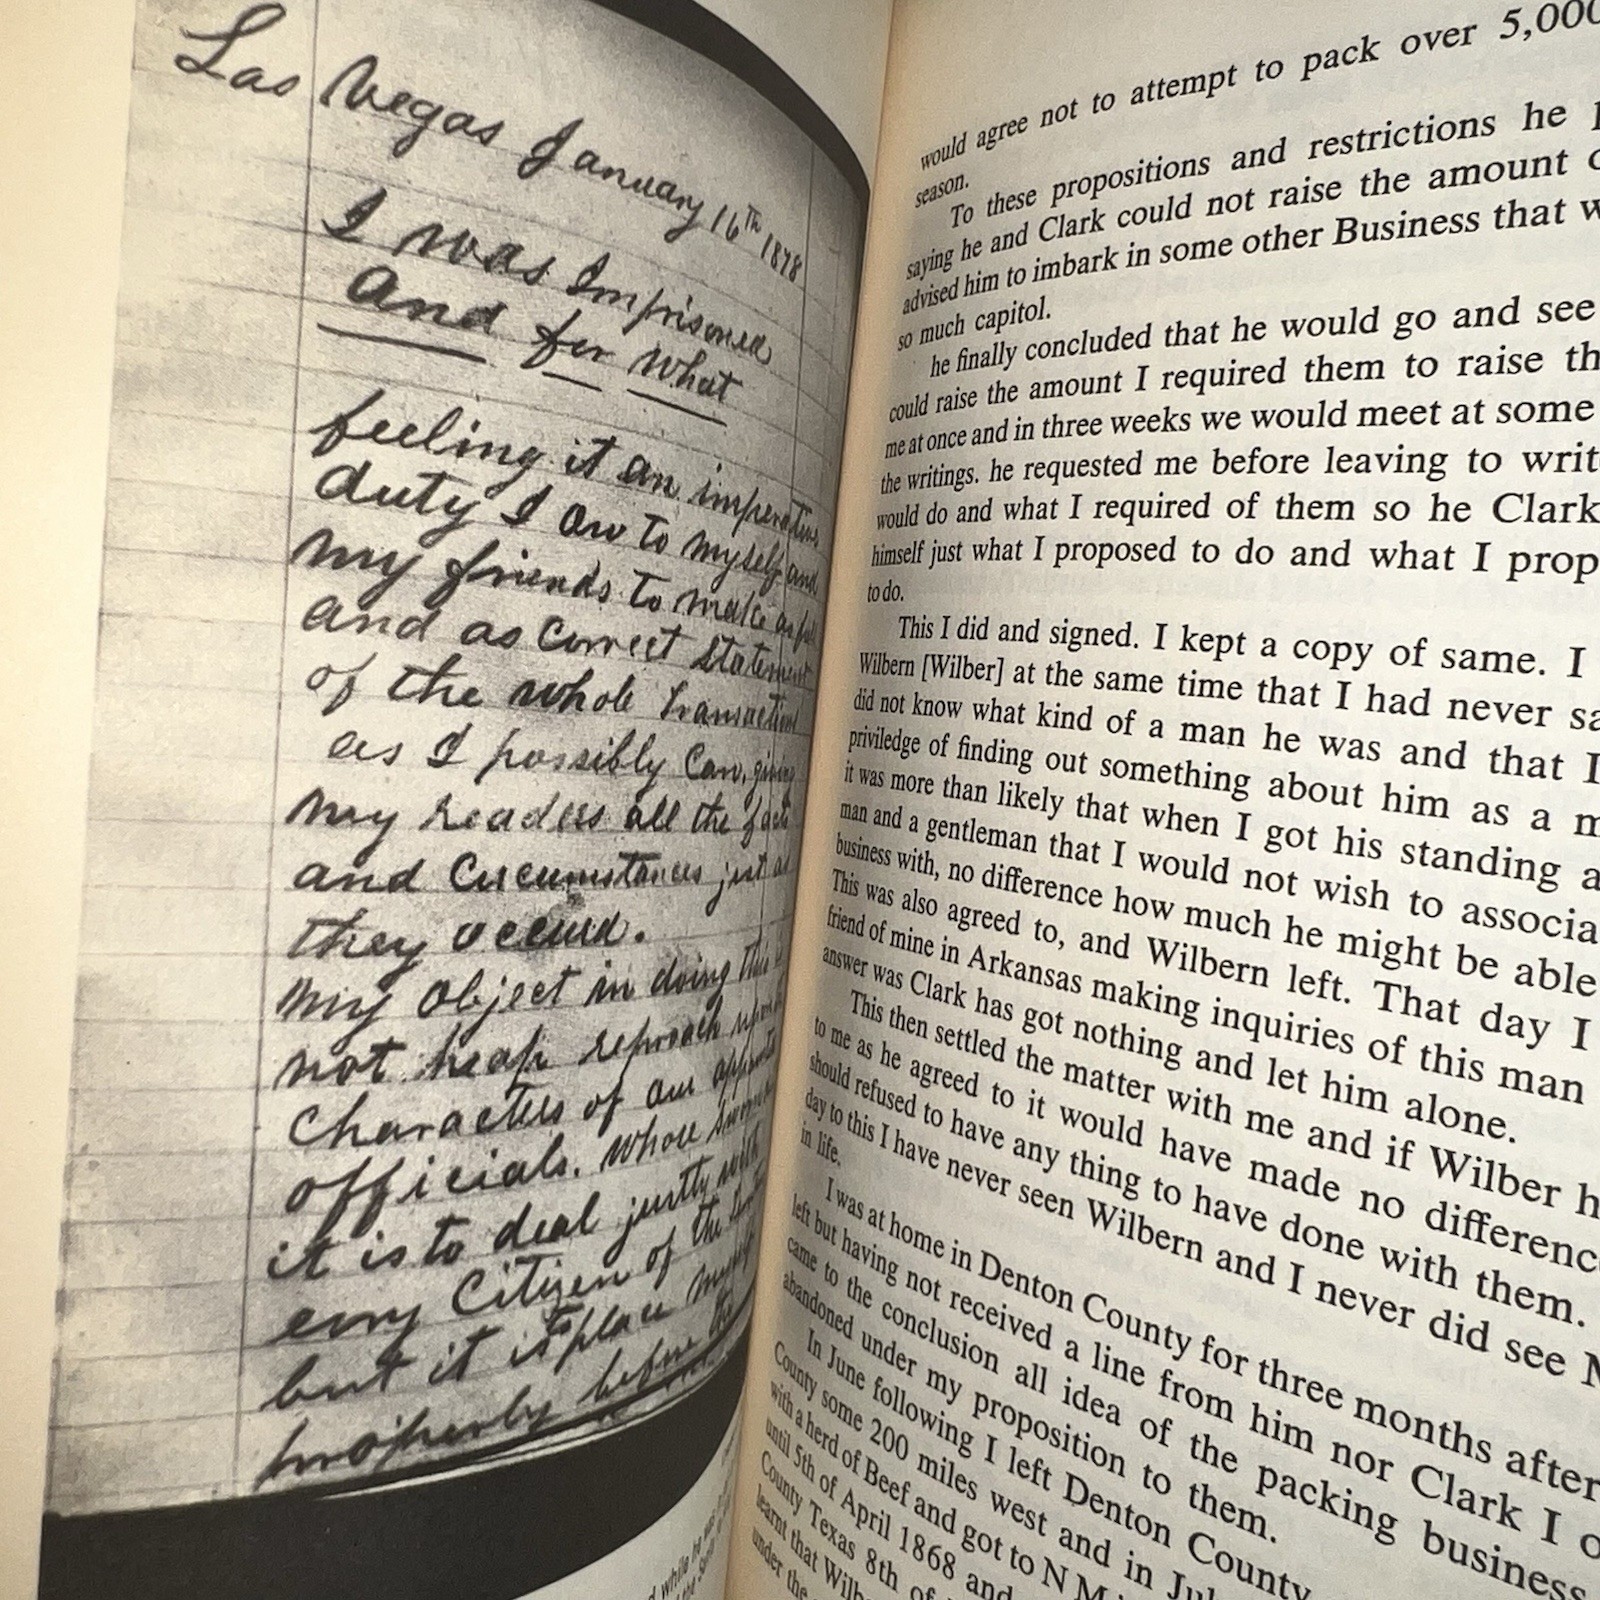 Las Vegas January 16th 1878
I was Imprisoned
and for what
feeling it an imperative
duty I ow to myself and
my friends to make as full
and as correct statement
of the whole transaction
as I possibly can, giving
my readers all the facts
and circumstances just as
they occurd.
my object in doing this is
not heap reproach upon
characters of our
officials. whose
it is to deal justly with
evry Citizen of the
but it is to place myself
properly before the
would agree not to attempt to pack over 5,000
season.
To these propositions and restrictions he
saying he and Clark could not raise the amount
advised him to imbark in some other Business that
so much capitol.
he finally concluded that he would go and see
could raise the amount I required them to raise
me at once and in three weeks we would meet at some
the writings. he requested me before leaving to
would do and what I required of them so he Clark
himself just what I proposed to do and what I
to do.
This I did and signed. I kept a copy of same. I
Wilbern [Wilber] at the same time that I had never
did not know what kind of a man he was and that I
priviledge of finding out something about him as a
it was more than likely that when I got his standing
man and a gentleman that I would not wish to
business with, no difference how much he might be able
This was also agreed to, and Wilbern left. That day I
friend of mine in Arkansas making inquiries of this man
answer was Clark has got nothing and let him alone.
This then settled the matter with me and if Wilber
to me as he agreed to it would have made no
should refused to have any thing to have done with them.
day to this I have never seen Wilbern and I never did see
in life.
I was at home in Denton County for three months after
left but having not received a line from him nor Clark I
came to the conclusion all idea of the packing business
abandoned under my proposition to them.
In June following I left Denton County
County some 200 miles west and in
with a herd of Beef and got to N M
until 5th of April 1868 and
County Texas 8th of
learnt that
under the